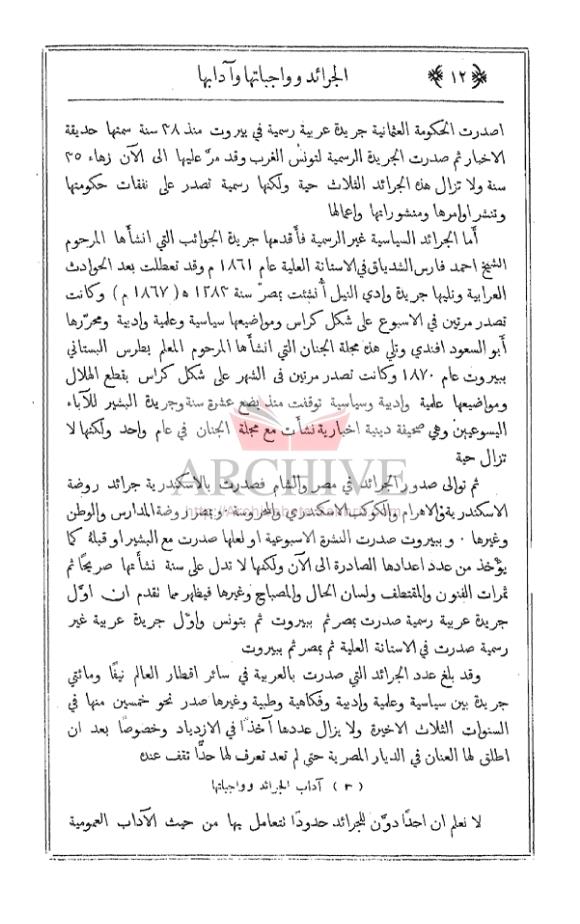 ﴿ ١٢ ﴾ الجرائد وواجباتها وآدابها
اصدرت الحكومة العثمانية جريدة عربية رسمية في بيروت منذ ٣٨ سنة سمتها حديقة
الاخبار ثم صدرت الجريدة الرسمية لتونس الغرب وقد مرَّ عليها الى الآن زهاء ٣٥
سنة ولا تزال هذه الجرائد الثلاث حية ولكنها رسمية تصدر على نفقات حكومتها
وتنشر اوامرها ومنشوراتها واعمالها
أما الجرائد السياسية غير الرسمية فأقدمها جريدة الجوائب التي انشأها المرحوم
الشيخ احمد فارس الشدياق في الاستانة العلية عام ١٨٦١ م وقد تعطلت بعد الحوادث
العرابية وتليها جريدة وادي النيل أُنشئت بمصر سنة ١٢٨٣ ه ( ١٨٦٧ م ) وكانت
تصدر مرتين في الاسبوع على شكل كراس ومواضيعها سياسية وعلمية وادبية ومحررها
أبو السعود افندي وتلي هذه مجلة الجنان التي انشأها المرحوم المعلم بطرس البستاني
ببيروت عام ١٨٧٠ وكانت تصدر مرتين في الشهر على شكل كراس بقطع الهلال
ومواضيعها علمية وادبية وسياسية توقفت منذ بضع عشرة سنة وجريدة البشير للآباء
اليسوعيين وهي صحيفة دينية اخبارية نشأت مع مجلة الجنان في عام واحد ولكنها لا
تزال حية
ARCHIVE
ثم توالى صدور الجرائد في مصر والشام فصدرت بالاسكندرية جرائد روضة
الاسكندرية والاهرام والكوكب الاسكندري والمحروسة وبمصر روضة المدارس والوطن
وغيرها ٠ وببيروت صدرت النشرة الاسبوعية او لعلها صدرت مع البشير او قبلهُ كما
يؤخذ من عدد اعدادها الصادرة الى الآن ولكنها لا تدل على سنة نشأتها صريحًا ثم
ثمرات الفنون والمقتطف ولسان الحال والمصباح وغيرها فيظهر مما تقدم ان اوَّل
جريدة عربية رسمية صدرت بمصر ثم ببيروت ثم بتونس واوَّل جريدة عربية غير
رسمية صدرت في الاستانة العلية ثم بمصر ثم ببيروت
وقد بلغ عدد الجرائد التي صدرت بالعربية في سائر اقطار العالم نيفًا ومائتي
جريدة بين سياسية وعلمية وادبية وفكاهية وطبية وغيرها صدر نحو خمسين منها في
السنوات الثلاث الاخيرة ولا يزال عددها آخذًا في الازدياد وخصوصًا بعد ان
اطلق لها العنان في الديار المصرية حتى لم تعد تعرف لها حدًّا تقف عنده
( ٣ ) آداب الجرائد وواجباتها
لا نعلم ان احدًا دوَّن للجرائد حدودًا تتعامل بها من حيث الآداب العمومية